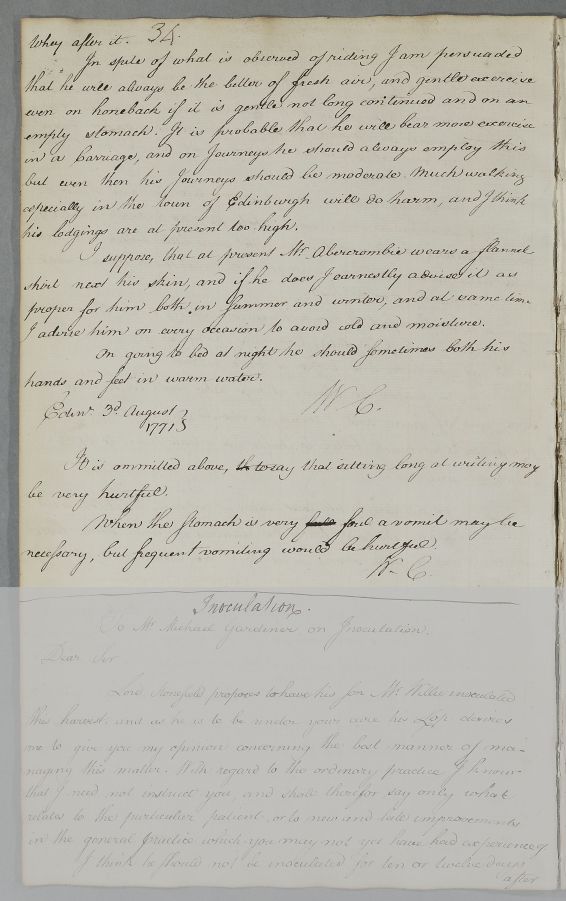 Whey after it. 34.
In spite of what is observed of riding I am persuaded
that he will always be the better of fresh air, and gentle exercise
even on horseback if it is gentle not long continued and on an
empty stomach. It is probable that he will bear more exercise
in a Carriage, and on Journeys he should always employ this
but even then his Journeys should be moderate. Much walking
especially in the town of Edinburgh will do harm, and I think
his lodgings are at present too high.
I suppose, that at present Mr Abercrombie wears a flannel
shirt next his skin, and if he does I earnestly advise it as
proper for him both in Summer and winter, and at same time
I advise him on every occasion to avoid cold and moisture.
On going to bed at night he should sometimes both his
hands and feet in warm water.
Edinr. 3d. August
1771
W. C.
It is ommitted above, to say that sitting long at writing may
be very hurtful.
When the Stomach is very foul a vomit may be
necessary, but frequent vomiting would be hurtful.
W. C.
Inoculation.
To Mr Michael Gardiner on Inoculation.
Dear Sir
Lord Stonefield proposes to have his son Mr. Willie inoculated
this harvest, and as he is to be under your care his Lop. desires
me to give you my opinion concerning the best manner of ma-
naging this matter. With regard to the ordinary practice I know
that I need not instruct you, and shall therefor say only what
relates to the particular patient, or to new and late improvements
in the general practice which you may not yet have had experience of
I think he should not be inoculated for ten or twelve days
after